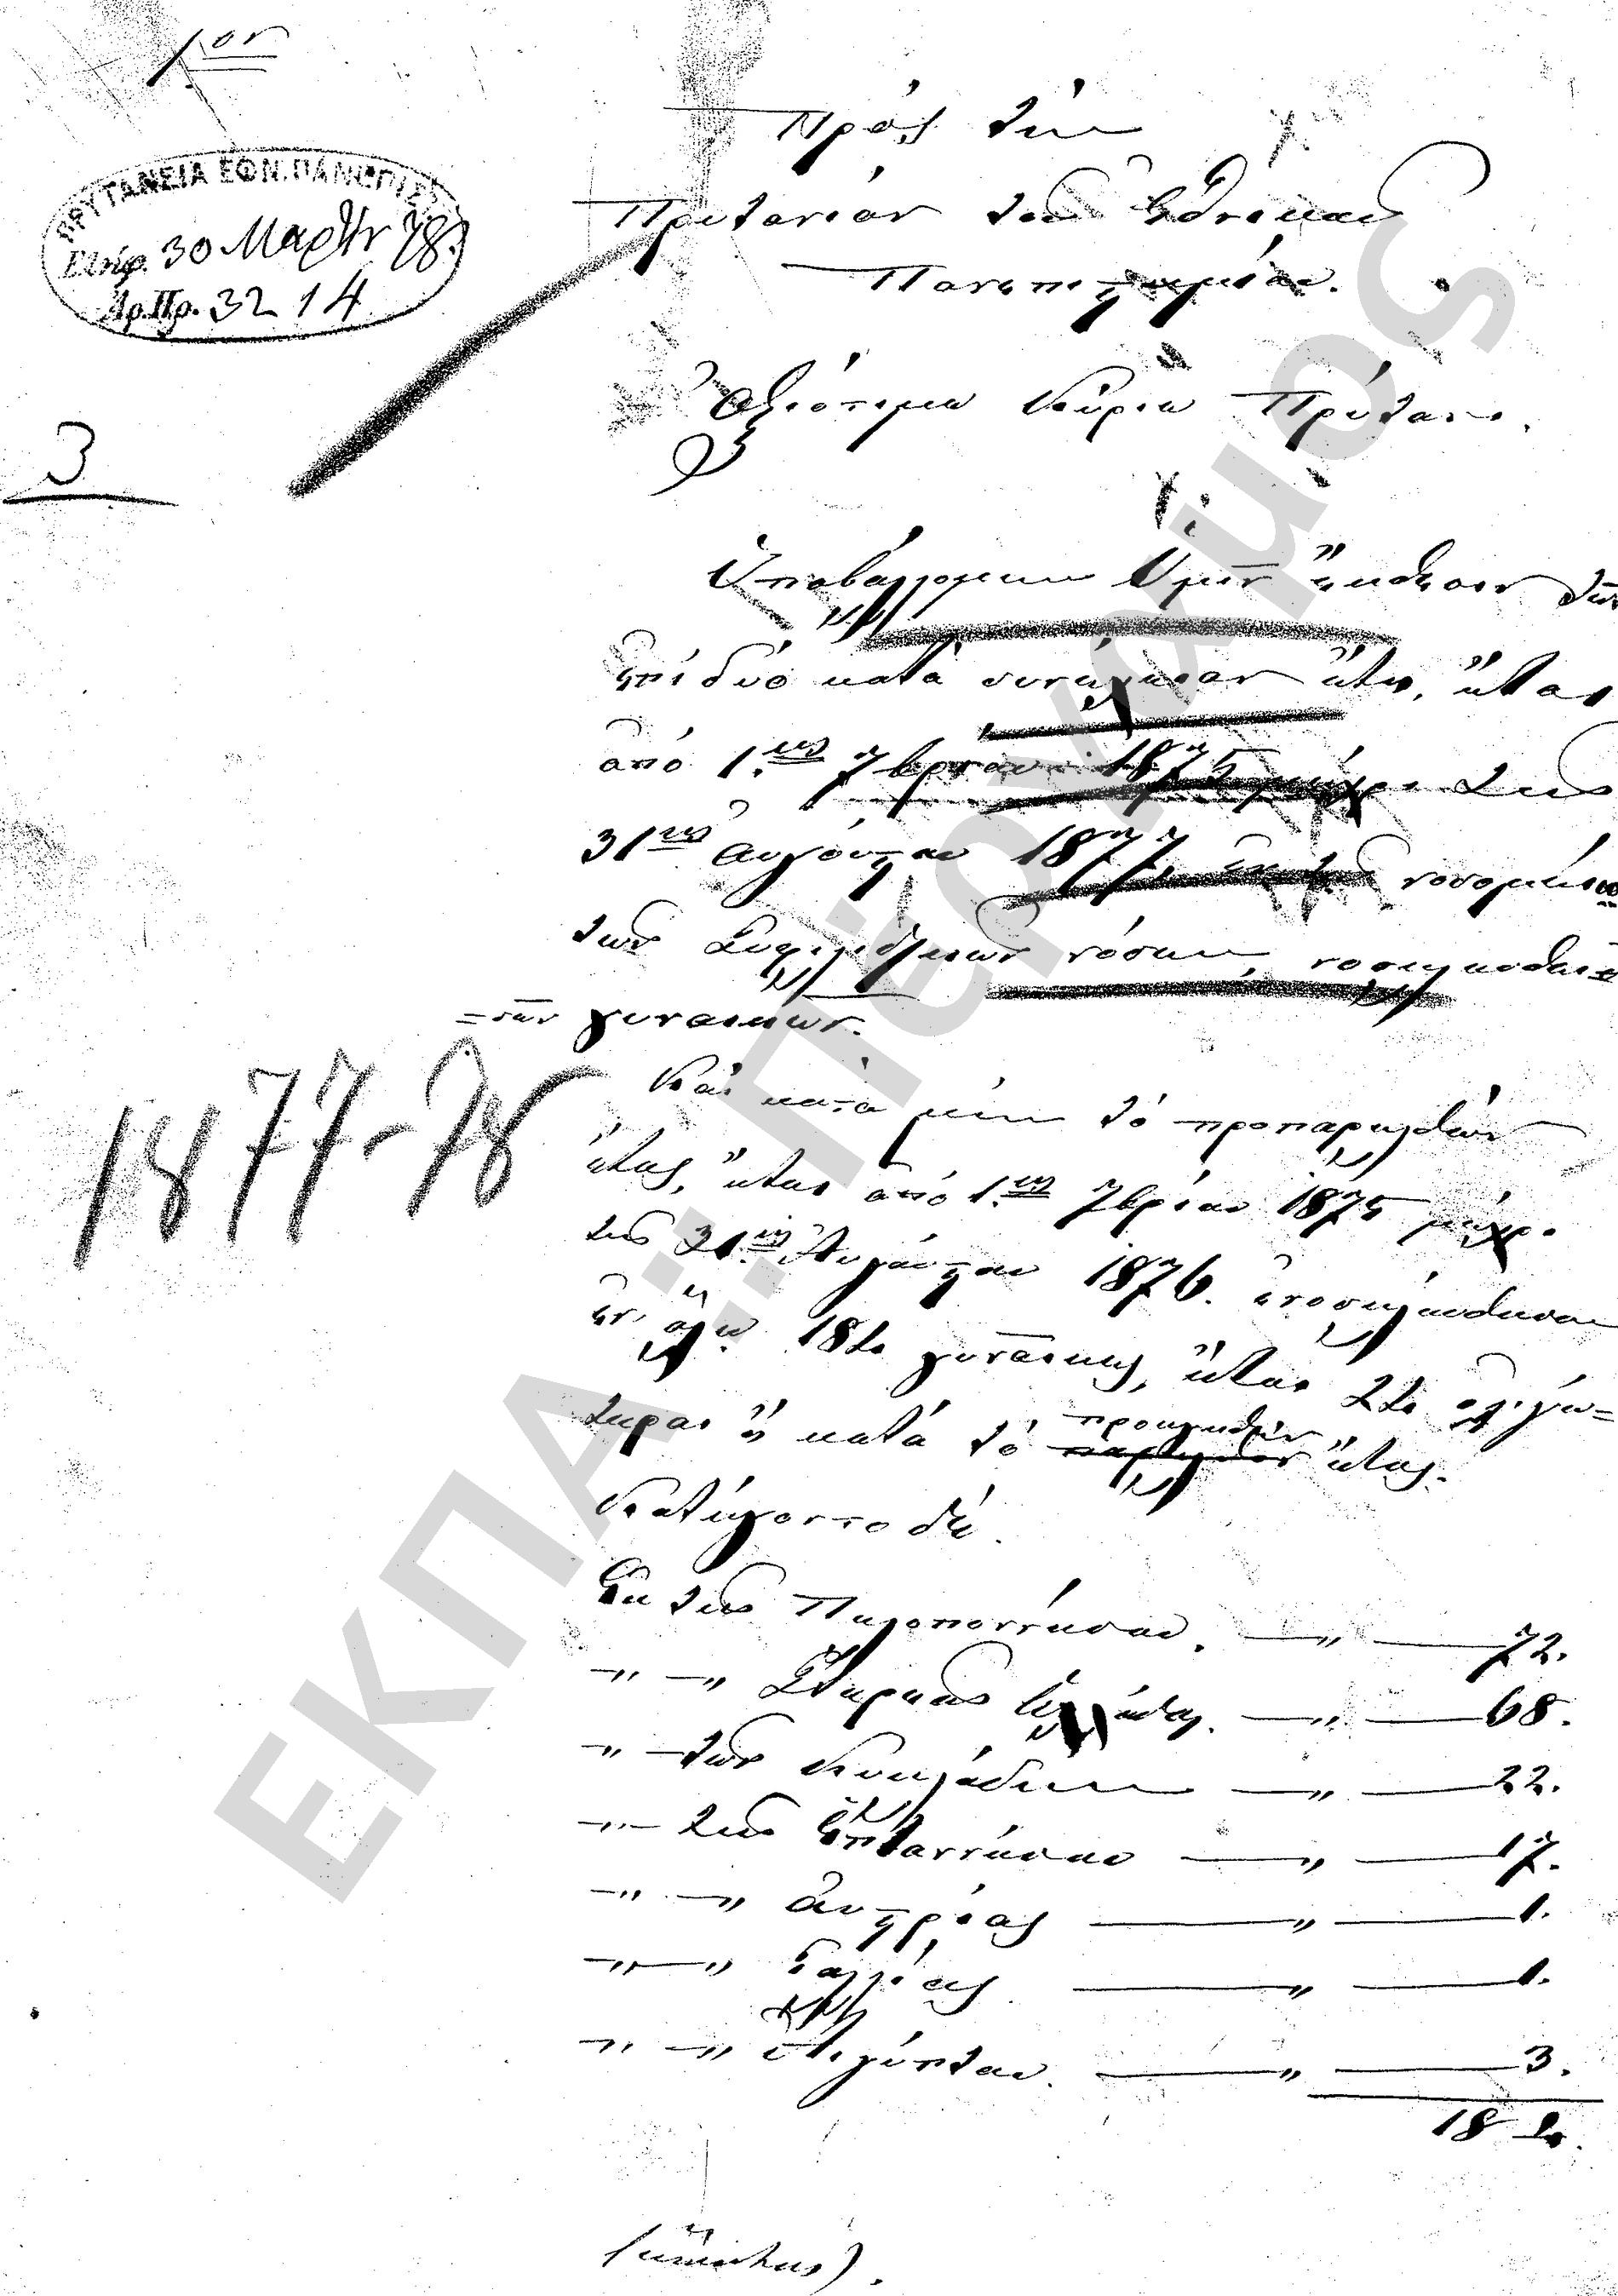 1ον
ΠΡΥΤΑΝΕΙΑ ΕΘΝ. ΠΑΝΕΠΙΣΤ
Εἰσήχ. 30 Μαρτίου 78.
Ἀρ. Πρ. 3214
3
Πρὸς τὴν
Πρυτανίαν τοῦ Ἐθνικοῦ
Πανεπιστημίου.
Ἀξιότιμε Κύριε Πρύτανι.
Ὑποβάλλομεν Ὑμῖν ἔκθεσιν τῶν
ἐπὶ δύο κατὰ συνέχειαν ἔτη, ἤτοι
ἀπὸ 1ης 7βρίου 1875 μέχρι τῆς
31ης Αὐγούστου 1877, ἐν τῷ νοσοκομείῳ
τῶν Συφιλιδικῶν νόσων, νοσηλευθει=
=σῶν γυναικῶν.
1877-78
Καὶ κατὰ μὲν τὸ προπαρελθὸν
ἔτος, ἤτοι ἀπὸ 1ης 7βρίου 1875 μέχρι
τῆς 31ης Αὐγούστου 1876. ἐνοσηλεύθησαν
ἐν ὅλῳ 184 γυναῖκες, ἤτοι 24 ὀλιγώ=
τεραι ἢ κατὰ τὸ προελθὸν ἔτος.
Κατήγοντο δὲ
Ἐκ τῆς Πελοποννήσου. — „ — 72.
„ — „ Στερεᾶς Ἑλλάδος. — „ — 68.
„ — τῶν Κυκλάδων — „ — 22.
„ — τῆς Ἑπταννήσου — „ — 17.
„ — „ Αὐστρίας — „ — 1.
„ — „ Γαλλίας — „ — 1.
„ — „ Αἰγύπτου. — „ — 3.
184.
ΕΚΠΑ.: Πέργαμος